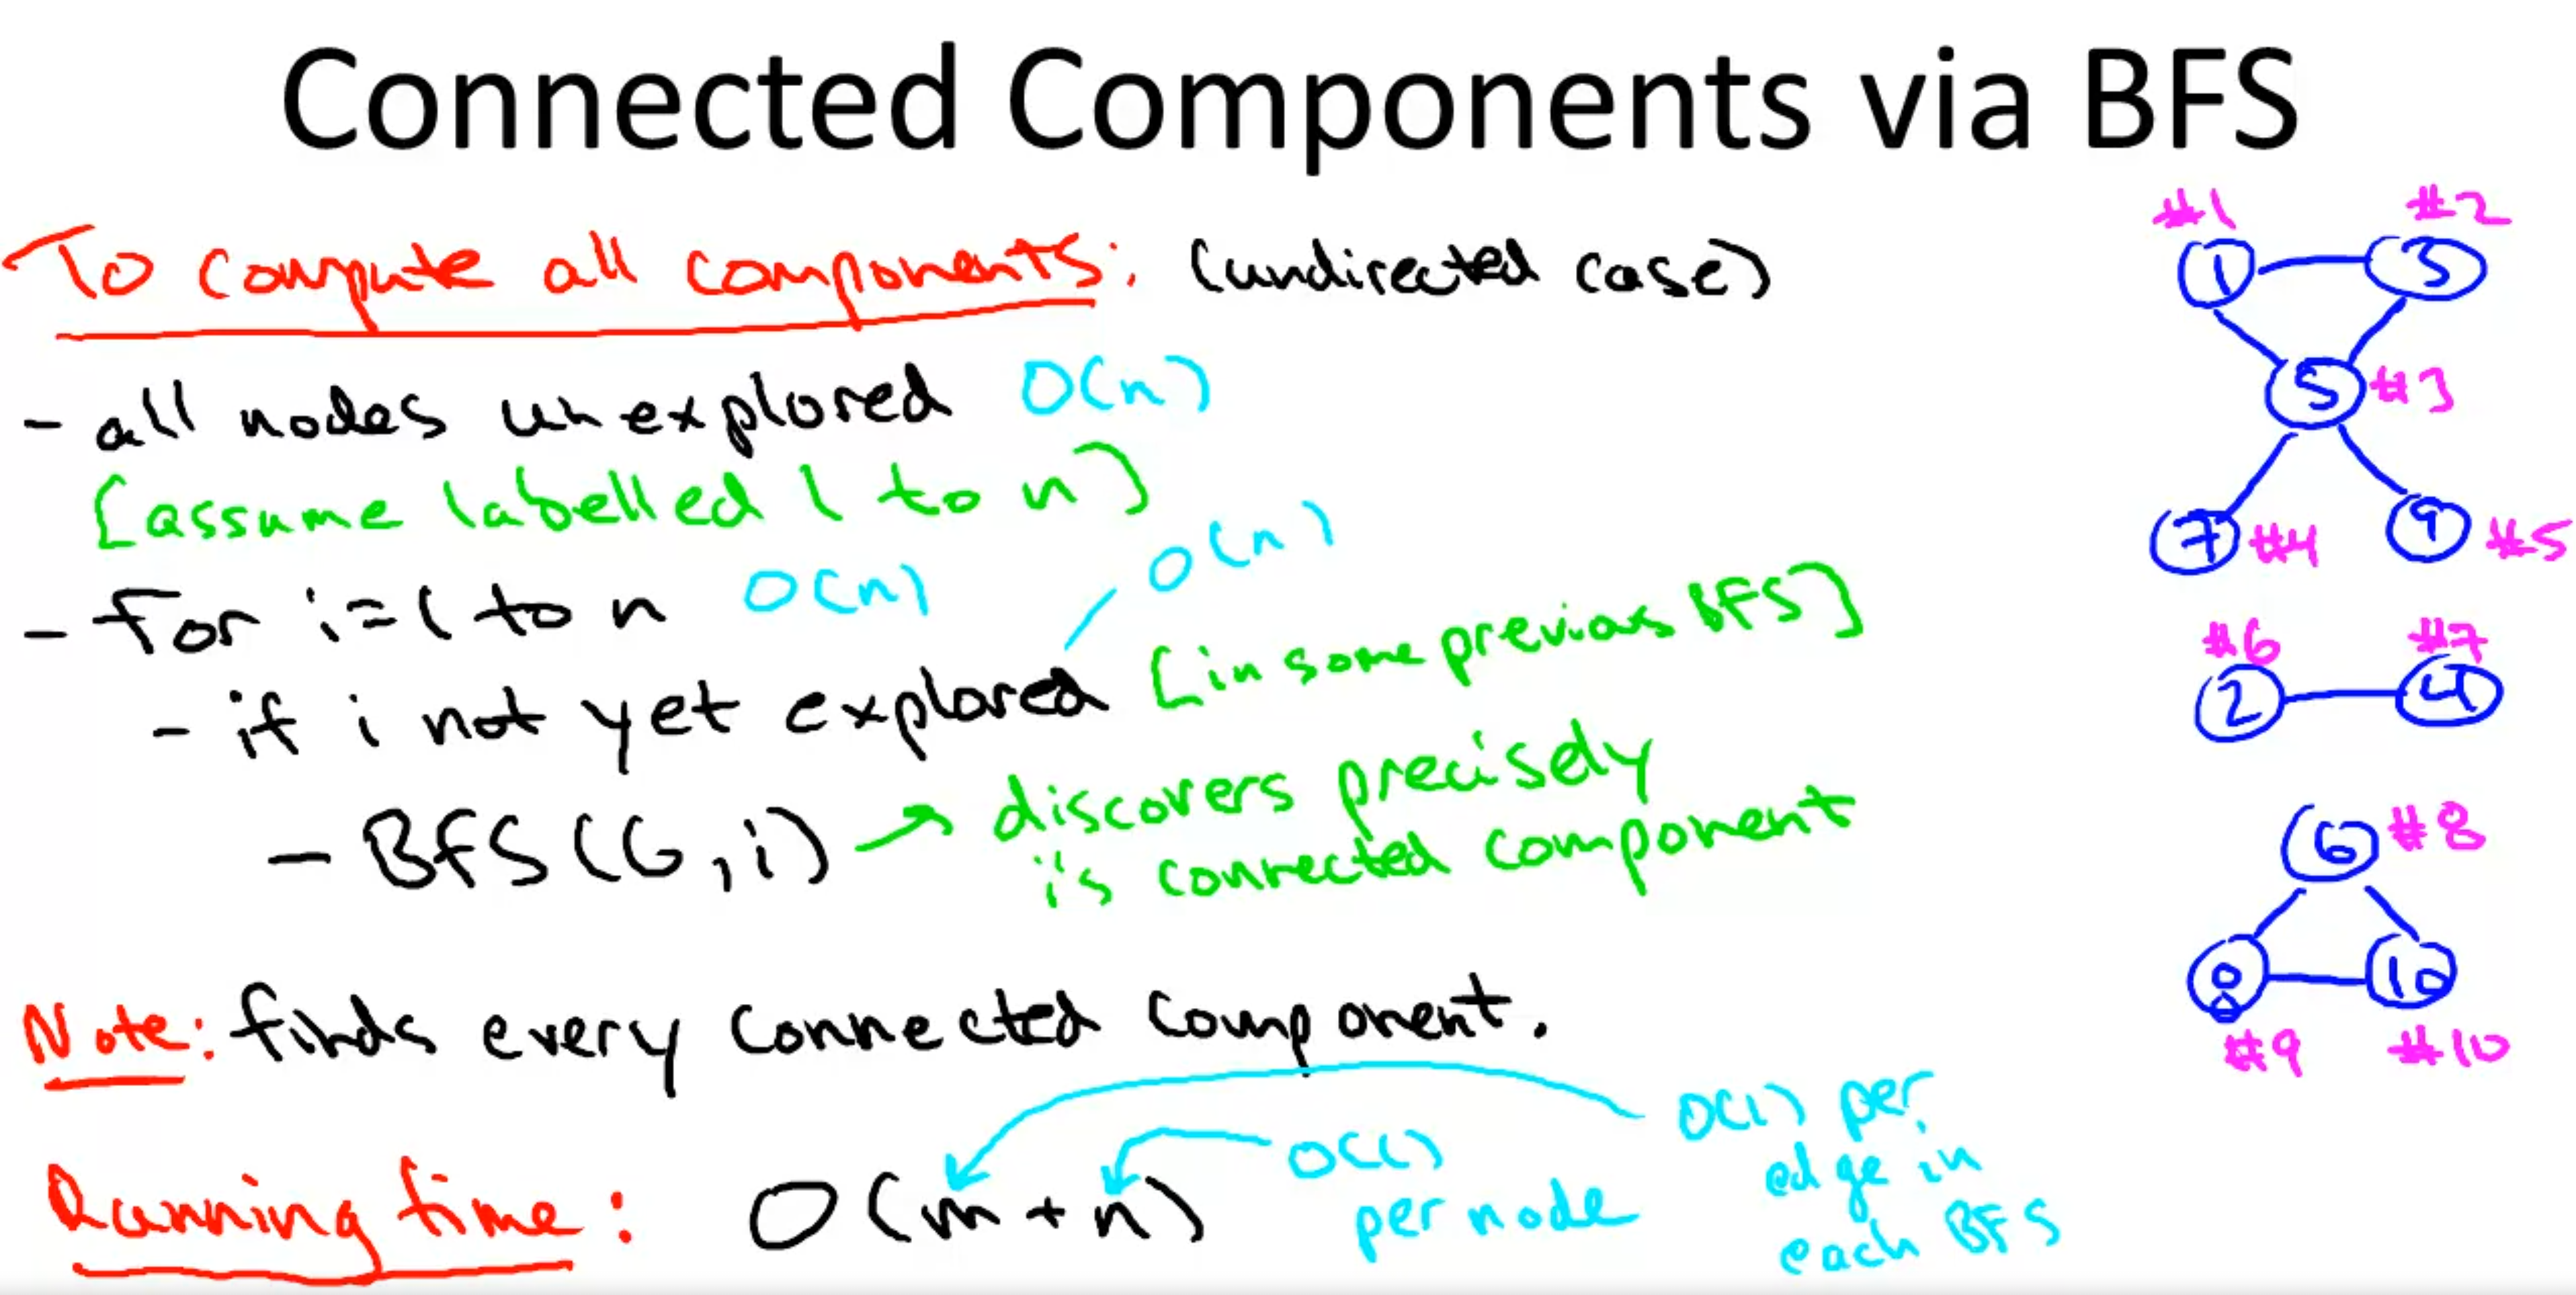 Connected Components via BFS
To compute all components: (undirected case)
- all nodes unexplored O(n)
[assume labelled 1 to n]
- For i=1 to n O(n)
O(n)
- if i not yet explored [in some previous BFS]
- BFS(G,i) → discovers precisely
i's connected component
Note: finds every connected component.
Running time: O(m+n)
O(1)
per node
O(1) per
edge in
each BFS
#1 #2
1 3
5 #3
7 #4 9 #5
#6 #7
2 4
6 #8
8 10
#9 #10